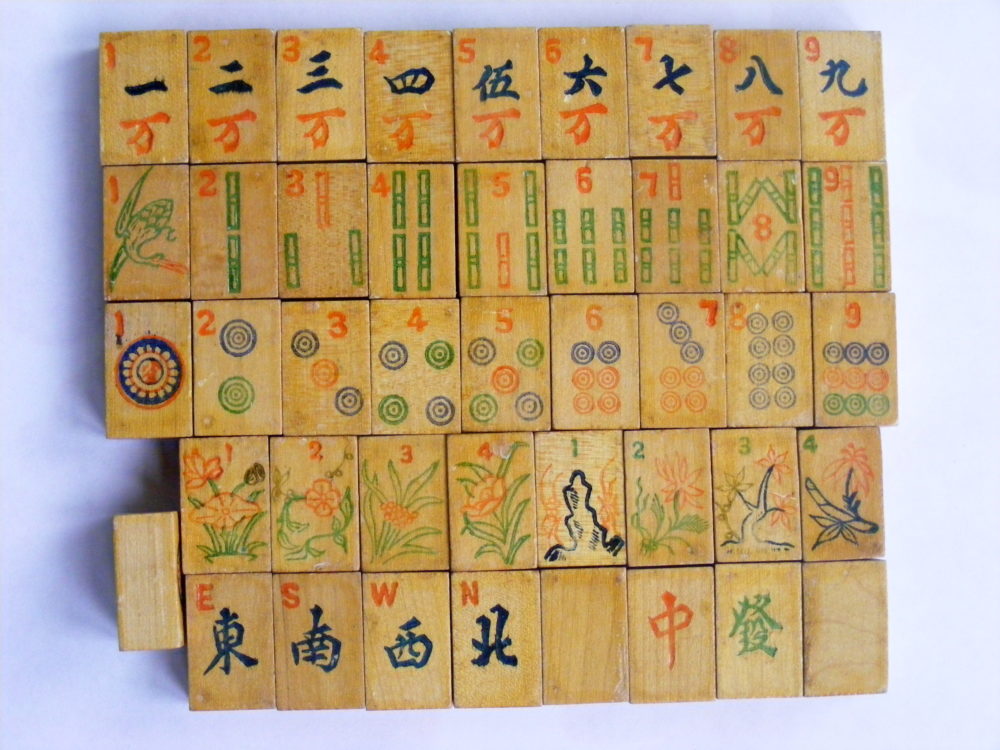 1 2 3 4 5 6 7 8 9
一 二 三 四 伍 六 七 八 九
万 万 万 万 万 万 万 万 万
1 2 3 4 5 6 7 8 9
1 2 3 4 5 6 7 8 9
1 2 3 4 1 2 3 4
E S W N
東 南 西 北 中 發